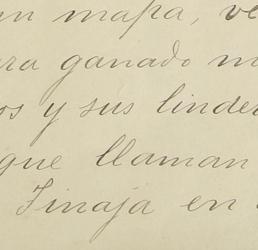 un mapa, ve
ara ganado m
os y sus linder
que llaman
Tinaja en